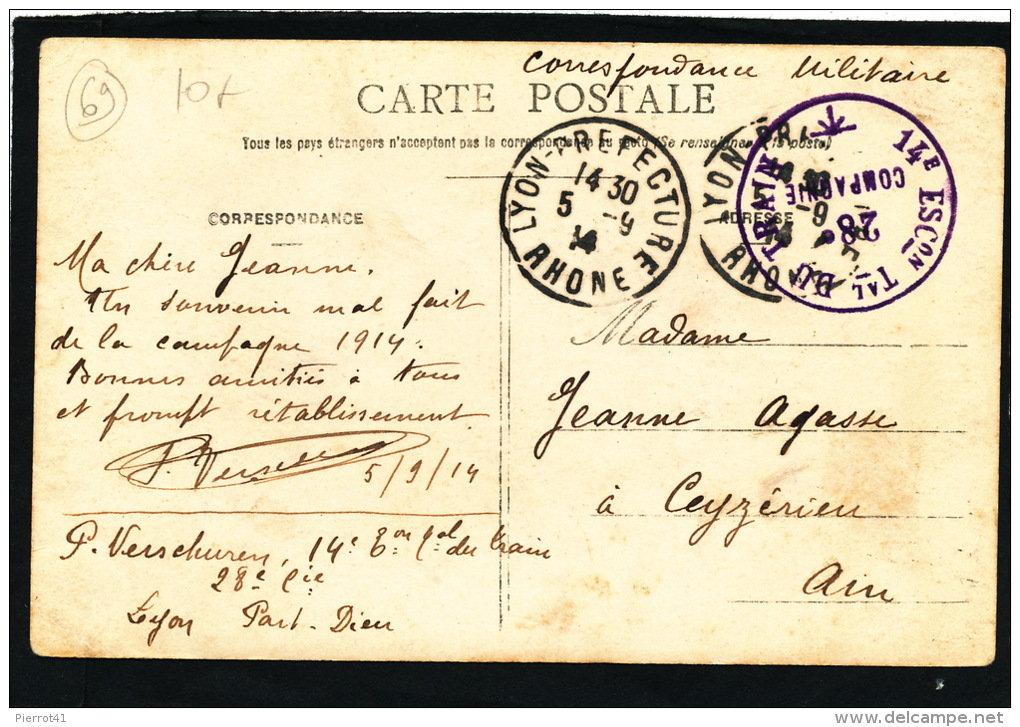 69
10+
Correspondance Militaire
CARTE POSTALE
Tous les pays étrangers n'acceptent pas la correspondance au recto (Se renseigner à la poste)
LYON-PREFECTURE
14 30
5 -9
14
RHONE
LYON-PR
-9
14
RHONE
14E ESCON TAL DU TRAIN
28e
COMPAGNIE
CORRESPONDANCE
ADRESSE
Ma chère Jeanne.
Un souvenir mal fait
de la campagne 1914.
Bonnes amitiés à tous
et prompt rétablissement.
P. Verschuren
5/9/14
P. Verschuren, 14e Eon tal du train
28e Cie
Lyon Part-Dieu
Madame
Jeanne Agasse
à Ceyzérieu
Ain
Pierrot41
www.delcampe.net